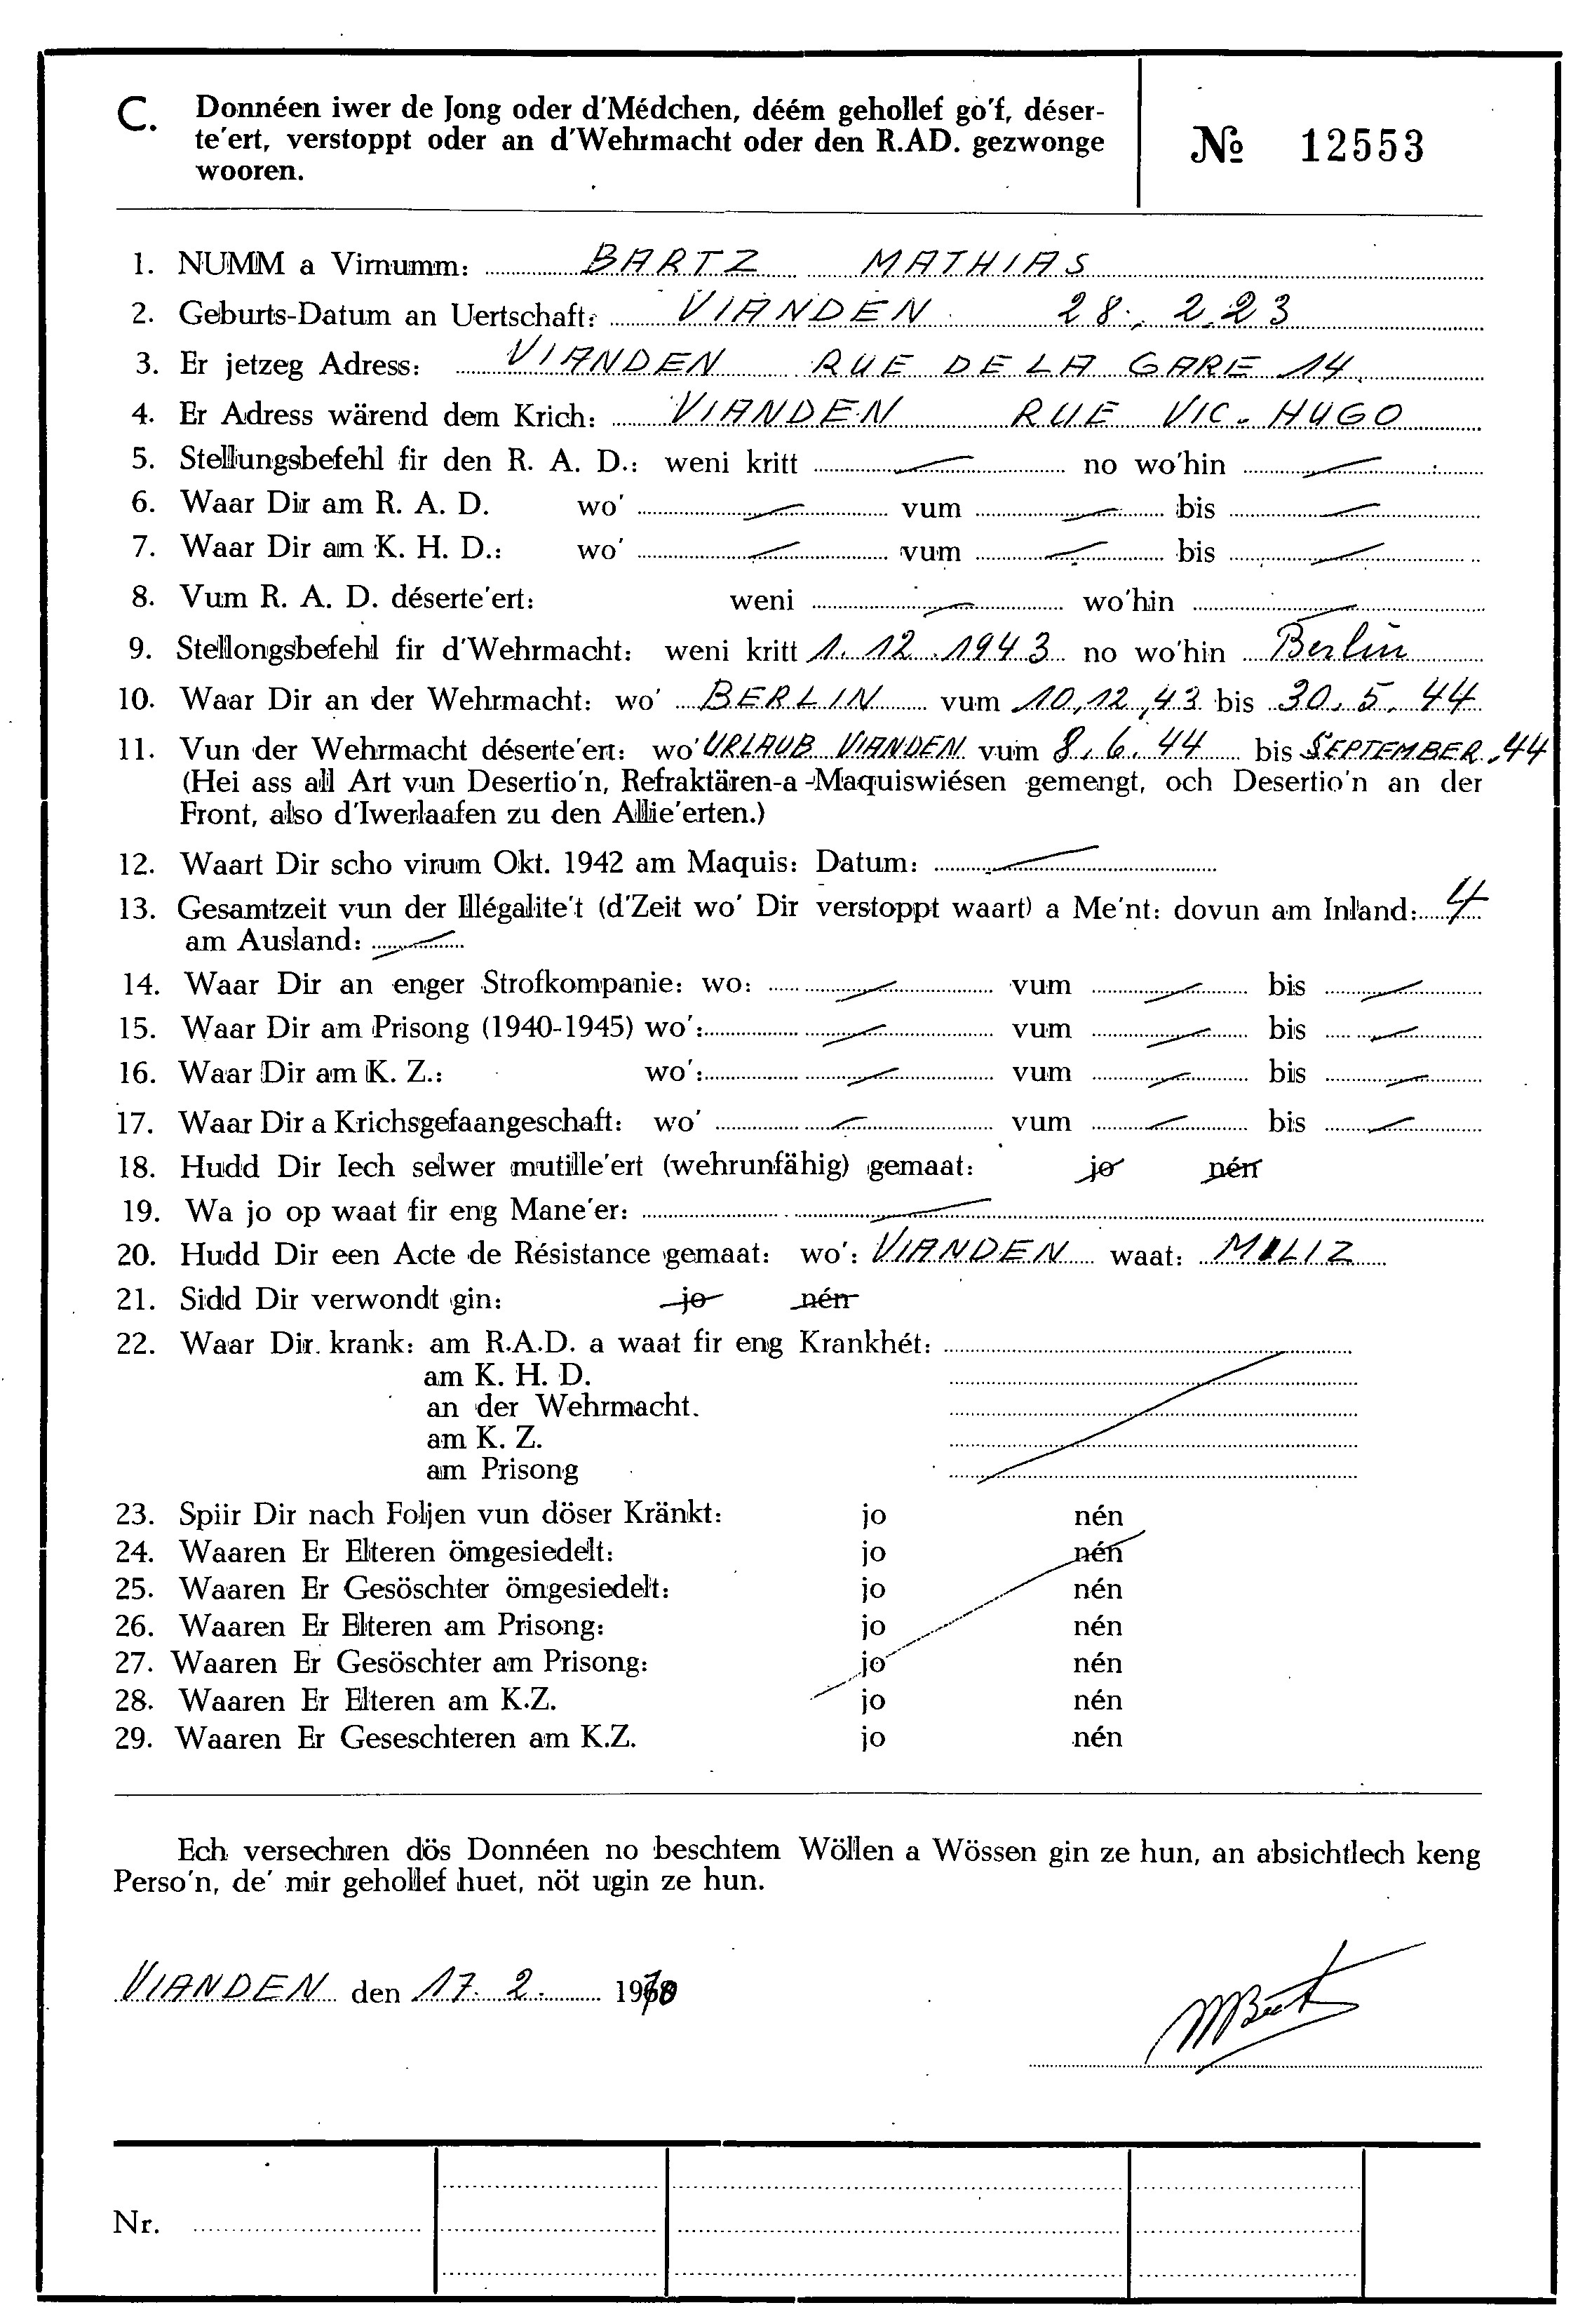 C. Donnéen iwer de Jong oder d'Médchen, déém gehollef go'f, déser-
te'ert, verstoppt oder an d'Wehrmacht oder den R.AD. gezwonge
wooren.
№ 12553
1. NUMM a Virnumm: BARTZ MATHIAS
2. Geburts-Datum an Uertschaft: VIANDEN 28. 2.23
3. Er jetzeg Adress: VIANDEN RUE DE LA GARE 14.
4. Er Adress wärend dem Krich: VIANDEN RUE VIC. HUGO
5. Stellungsbefehl fir den R. A. D.: weni kritt — no wo'hin —
6. Waar Dir am R. A. D. wo' — vum — bis —
7. Waar Dir am K. H. D.: wo' — vum — bis —
8. Vum R. A. D. déserte'ert: weni — wo'hin —
9. Stellongsbefehl fir d'Wehrmacht: weni kritt 1. 12. 1943 no wo'hin Berlin
10. Waar Dir an der Wehrmacht: wo' BERLIN vum 10,12,43 bis 30. 5. 44
11. Vun der Wehrmacht déserte'ert: wo' URLAUB VIANDEN vum 8. 6. 44 bis SEPTEMBER.44
(Hei ass all Art vun Desertio'n, Refraktären-a -Maquiswiésen gemengt, och Desertio'n an der
Front, also d'Iwerlaafen zu den Allie'erten.)
12. Waart Dir scho virum Okt. 1942 am Maquis: Datum: —
13. Gesamtzeit vun der Illégalite't (d'Zeit wo' Dir verstoppt waart) a Me'nt: dovun am Inland: 4
am Ausland: —
14. Waar Dir an enger Strofkompanie: wo: — vum — bis —
15. Waar Dir am Prisong (1940-1945) wo': — vum — bis —
16. Waar Dir am K. Z.: wo': — vum — bis —
17. Waar Dir a Krichsgefaangeschaft: wo' — vum — bis —
18. Hudd Dir Iech selwer mutille'ert (wehrunfähig) gemaat: jo nén
19. Wa jo op waat fir eng Mane'er: —
20. Hudd Dir een Acte de Résistance gemaat: wo': VIANDEN waat: MILIZ
21. Sidd Dir verwondt gin: jo nén
22. Waar Dir krank: am R.A.D. a waat fir eng Krankhét:
am K. H. D.
an der Wehrmacht.
am K. Z.
am Prisong
23. Spiir Dir nach Foljen vun döser Kränkt: jo nén
24. Waaren Er Elteren ömgesiedelt: jo nén
25. Waaren Er Gesöschter ömgesiedelt: jo nén
26. Waaren Er Elteren am Prisong: jo nén
27. Waaren Er Gesöschter am Prisong: jo nén
28. Waaren Er Elteren am K.Z. jo nén
29. Waaren Er Geseschteren am K.Z. jo nén
Ech versechren dös Donnéen no beschtem Wöllen a Wössen gin ze hun, an absichtlech keng
Perso'n, de' mir gehollef huet, nöt ugin ze hun.
VIANDEN den 17. 2. 1970
Nr.